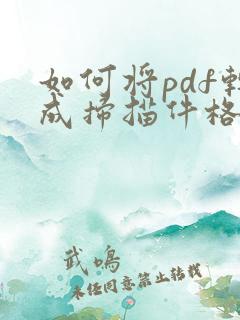 如何将pdf转
成扫描件格
武鸣
未经同意禁止转载